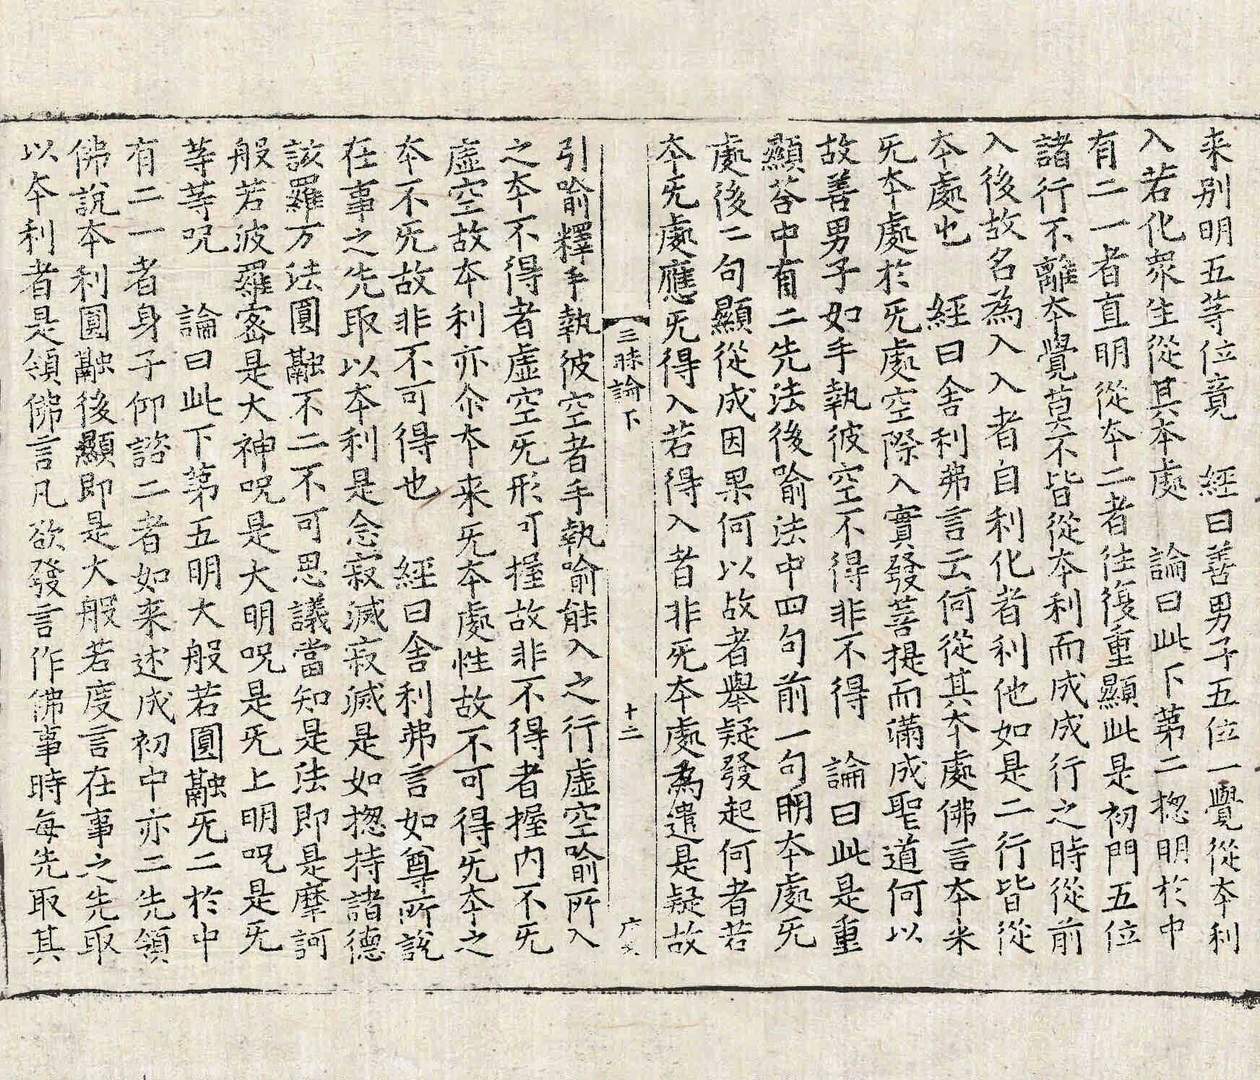 来别明五等位竟　經曰善男子五位一覺從本利
入若化衆生從其本處　論曰此下第二揔明於中
有二一者直明從本二者往復重顯此是初門五位
諸行不離本覺莫不皆從本利而成成行之時從前
入後故名為入入者自利化者利他如是二行皆從
本處也　經曰舍利弗言云何從其本處佛言本来
旡本處於旡處空際入實發菩提而滿成聖道何以
故善男子如手執彼空不得非不得　論曰此是重
顯荅中有二先法後喻法中四句前一句明本處旡
處後二句顯從成因果何以故者舉疑發起何者若
本旡處應旡得入若得入者非旡本處為遣是疑故
三昧論下　十三
引喻釋手執彼空者手執喻能入之行虛空喻所入
之本不得者虛空旡形可握故非不得者握内不旡
虛空故本利亦尒本来旡本處性故不可得旡本之
本不旡故非不可得也　經曰舍利弗言如尊所說
在事之先取以本利是念寂滅寂滅是如揔持諸德
該羅万法圓融不二不可思議當知是法即是摩訶
般若波羅蜜是大神呪是大明呪是旡上明呪是旡
等等呪　論曰此下第五明大般若圓融旡二於中
有二一者身子仰諮二者如来述成初中亦二先領
佛說本利圓融後顯即是大般若度言在事之先取
以本利者是領佛言凡欲發言作佛事時每先取其